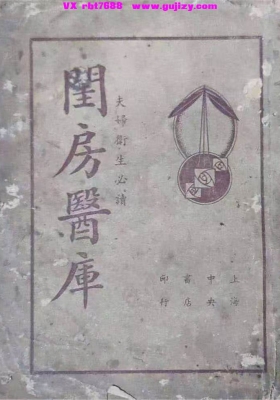 VX rbt7688 www.gujizy.com
閨房醫庫
夫婦衛生必讀
上海
中央
書店
印行